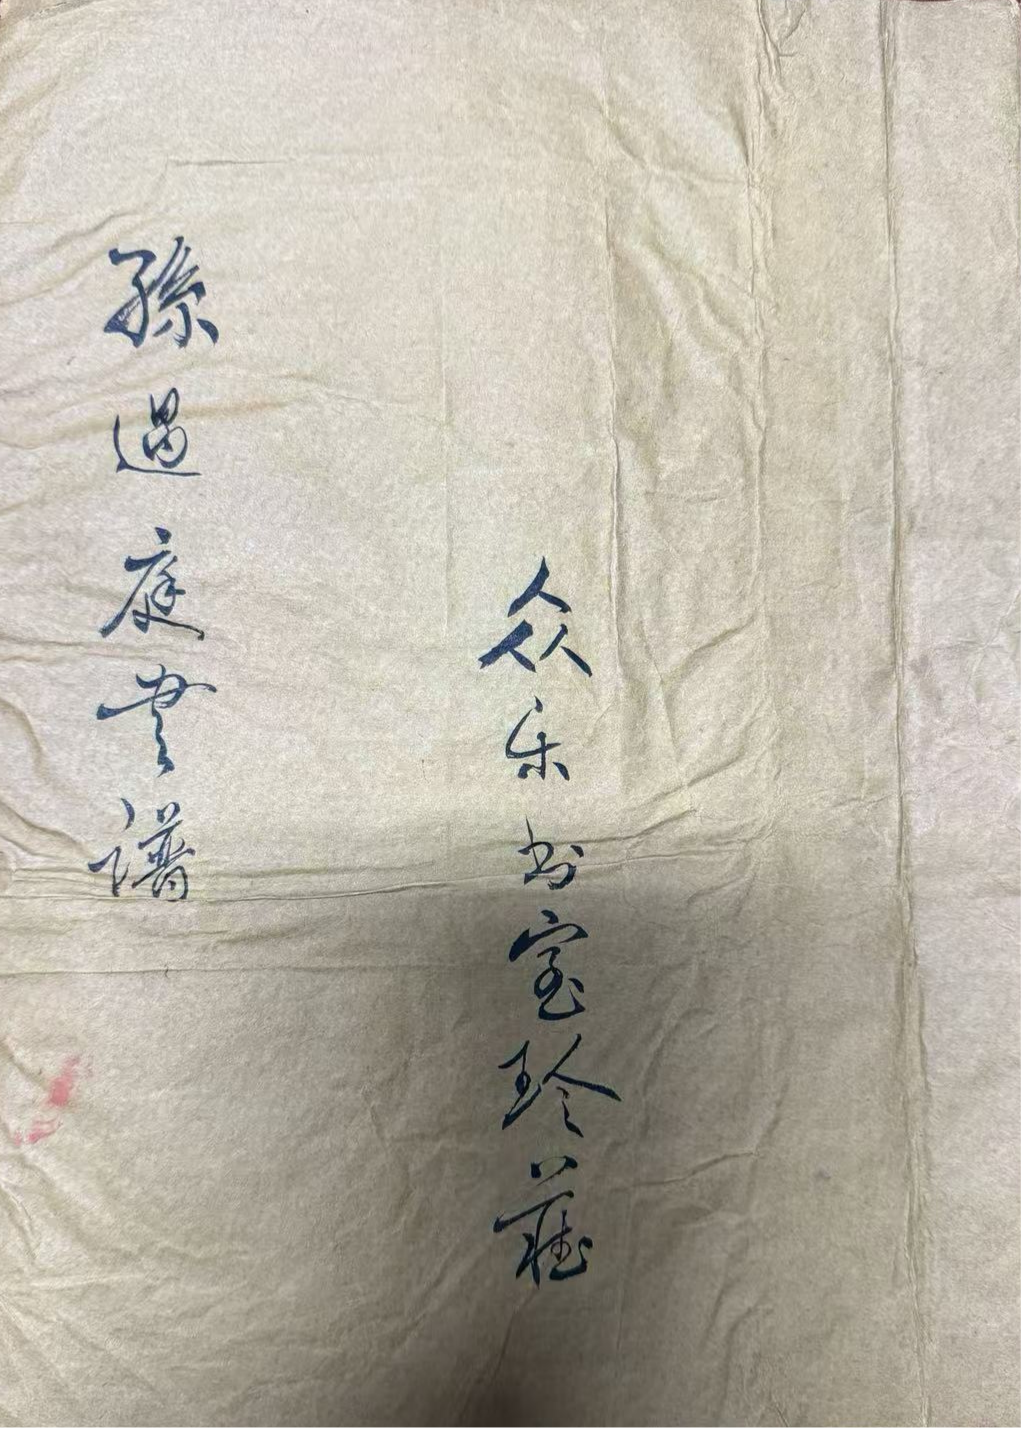 众乐书室珍藏
孫過庭書譜